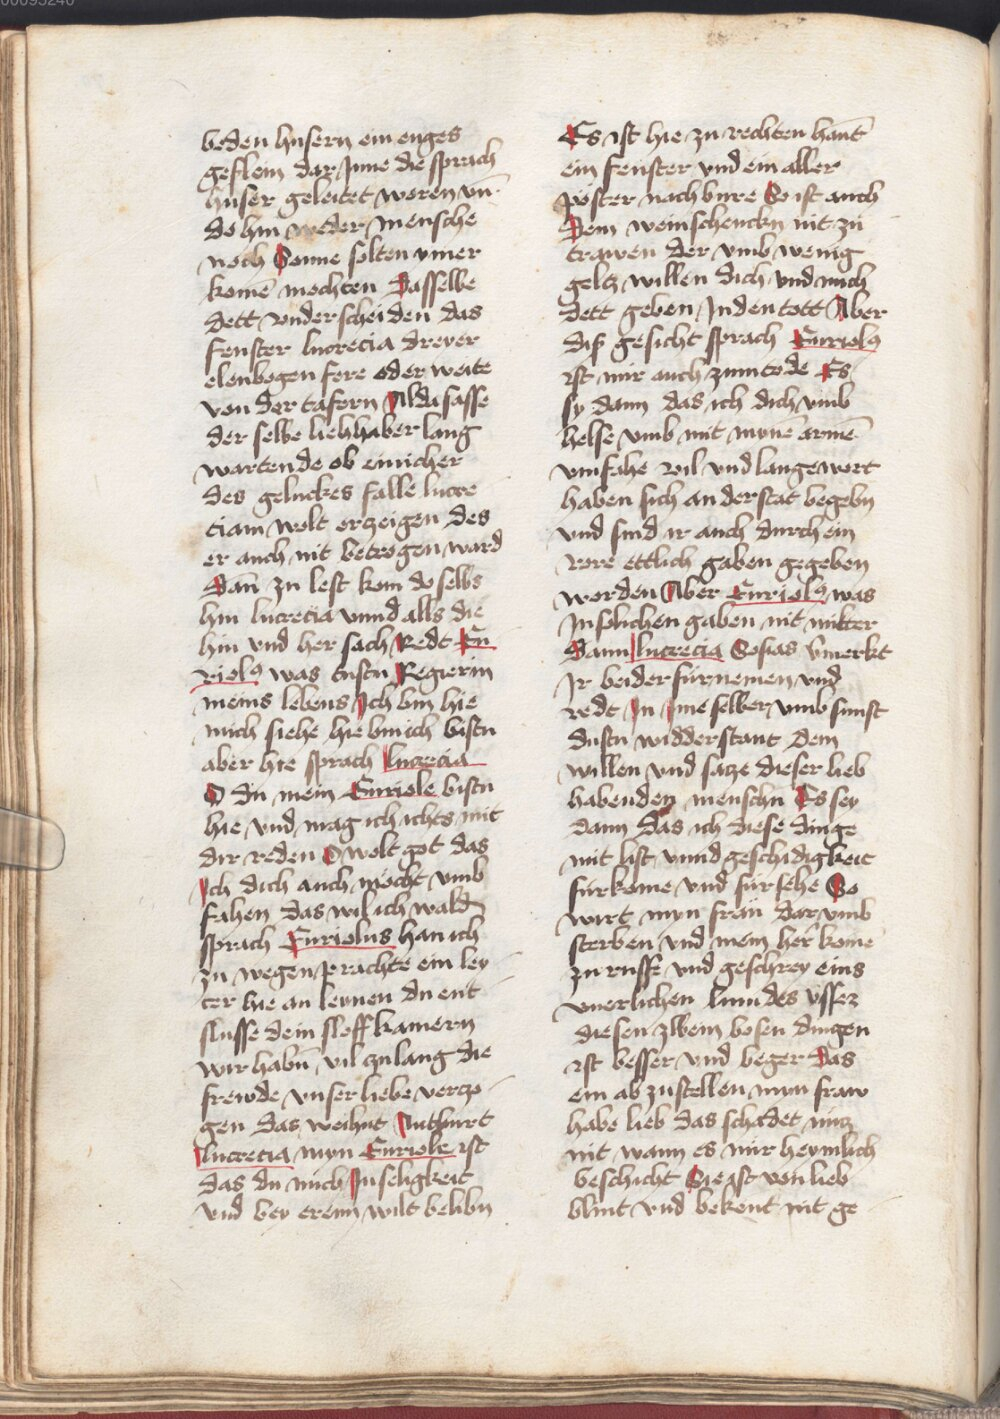 beden husern ein enges
geslein dar Inne die sprach
huser geleitet woren vn̄
do hin weder mensche
noch Sonne solten ymer
komē mochten Dasselbe
dett vnderscheiden das
fenster lucrecia dreyer
elenbogen fere oder weite
von der tafern Alda sasse
der selbe liebhaber lang
wartende ob einicher
des geluckes falle lucre
ciam wolt erzeigen des
er auch nit betrogen ward
Dan̄ zu lest kom do selbs
hin lucrecia vnnd alls die
hin vnd her sach Redt Eu
riolꝯ was tustu Regierin
meins lebens Ich bin hie
mich siehe hie bin ich bistu
aber hie sprach lucrecia
O du mein Euriole bistu
hie vnd mag ich ichts mit
dir reden O wolt got das
Ich dich auch mocht vmb
fahen das wil ich wald
sprach Euriolus han ich
zu wegen prachte ein ley
ter hie an leynen du ent
slusse dein sloffkamern
wir habn̄ vil zu lang die
frewde vnser liebe verczo
gen das weihut Antburt
lucrecia myn Euriole ist
das du mich In seligkeit
vnd bey erenn wilt belibn
Es ist hie zu rechten hant
ein fenster vnd ein aller
poster nachbure So ist auch
Dem weinschenckn nit zu
trawen der vmb wenig
gelcz willen dich vnd mich
dett geben In den tott Aber
diß gesicht sprach Euriolꝯ
ist mir auch zum tode Es
sy dann das ich dich vmb
helse vmb mit mynē armē
vmfahe vil vnd lange wort
haben sich an der stat begebn
vnd sind ir auch durch ein
rore ettlich gaben gegeben
worden Aber Euriolꝯ was
In solichen gaben nit milter
Dann lucrecia Sosias v̄merkt
Ir beider furnemen vnd
redt In Ime selber vmb sunst
dustu widderstant dem
willen vnd sacze dieser lieb
habenden menschn Es sey
dann das ich diese dinge
mit list vnnd geschidigkeit
furkome vnd fursehe So
wirt myn frau dar vmb
sterben vnd mein her kome
zu ruffe vnd geschrey eins
vnerlichen lumdes vssez
diesen zwein bosen dingen
ist besser vnd beger Das
ein ab zu stellen myn fraw
habe lieb das schadet nucz
nit wann es nur heymlich
beschicht Sie ist von lieb
blint vnd bekent nit ge